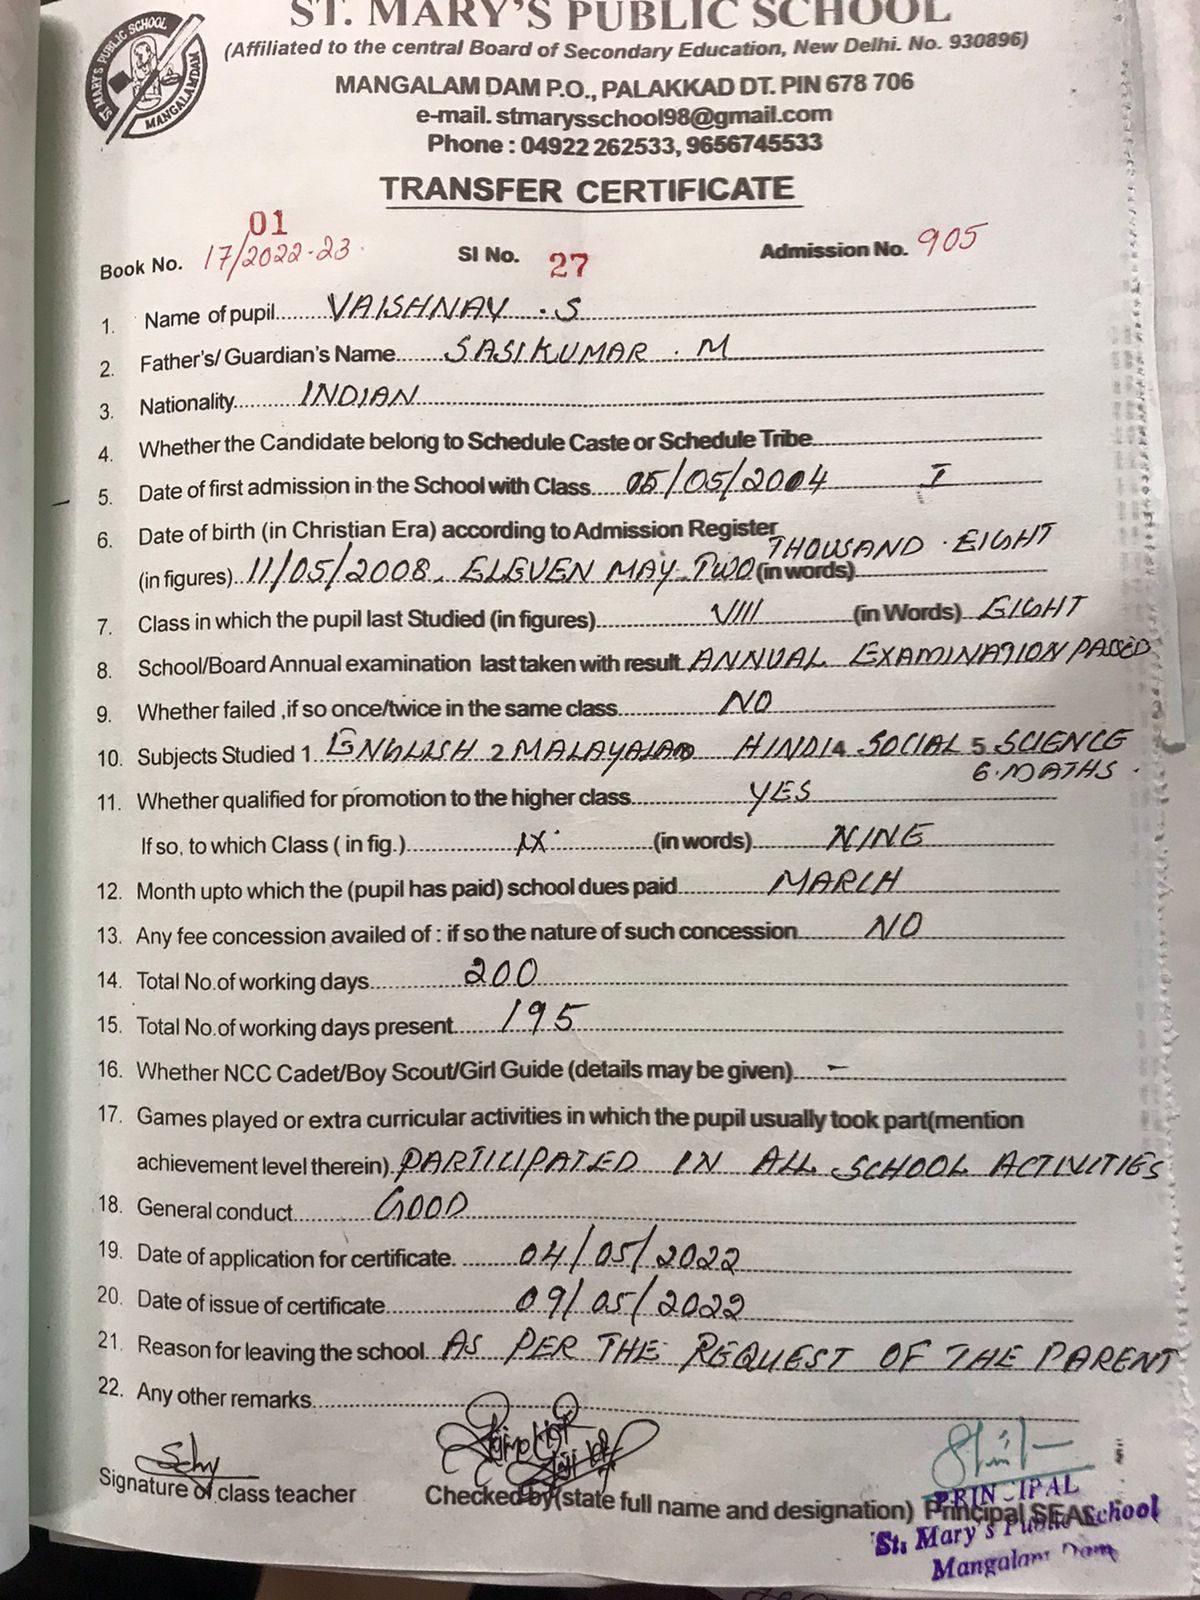 ST. MARY'S PUBLIC SCHOOL
ST. MARY'S PUBLIC SCHOOL
MANGALAMDAM
(Affiliated to the central Board of Secondary Education, New Delhi. No. 930896)
MANGALAM DAM P.O., PALAKKAD DT. PIN 678 706
e-mail. stmarysschool98@gmail.com
Phone : 04922 262533, 9656745533
TRANSFER CERTIFICATE
01
Book No. 17/2022-23. SI No. 27 Admission No. 905
1. Name of pupil VAISHNAV . S
2. Father's/ Guardian's Name SASIKUMAR . M
3. Nationality INDIAN
4. Whether the Candidate belong to Schedule Caste or Schedule Tribe
5. Date of first admission in the School with Class 05/05/2004 I
6. Date of birth (in Christian Era) according to Admission Register
THOUSAND . EIGHT
(in figures) 11/05/2008. ELEVEN MAY TWO (in words)
7. Class in which the pupil last Studied (in figures) VIII (in Words) EIGHT
8. School/Board Annual examination last taken with result ANNUAL EXAMINATION PASSED
9. Whether failed ,if so once/twice in the same class NO
10. Subjects Studied 1. ENGLISH 2 MALAYALAM HINDI 4 SOCIAL 5 SCIENCE
6. MATHS .
11. Whether qualified for promotion to the higher class YES
If so, to which Class ( in fig.) IX (in words) NINE
12. Month upto which the (pupil has paid) school dues paid MARCH
13. Any fee concession availed of : if so the nature of such concession NO
14. Total No.of working days 200
15. Total No.of working days present 195
16. Whether NCC Cadet/Boy Scout/Girl Guide (details may be given) -
17. Games played or extra curricular activities in which the pupil usually took part(mention
achievement level therein) PARTICIPATED IN ALL SCHOOL ACTIVITIES
18. General conduct GOOD
19. Date of application for certificate. 04/05/2022
20. Date of issue of certificate 09/05/2022
21. Reason for leaving the school AS PER THE REQUEST OF THE PARENT
22. Any other remarks
Signature of class teacher Checked by(state full name and designation) Principal SEAL
PRINCIPAL
St. Mary's Public School
Mangalam Dam